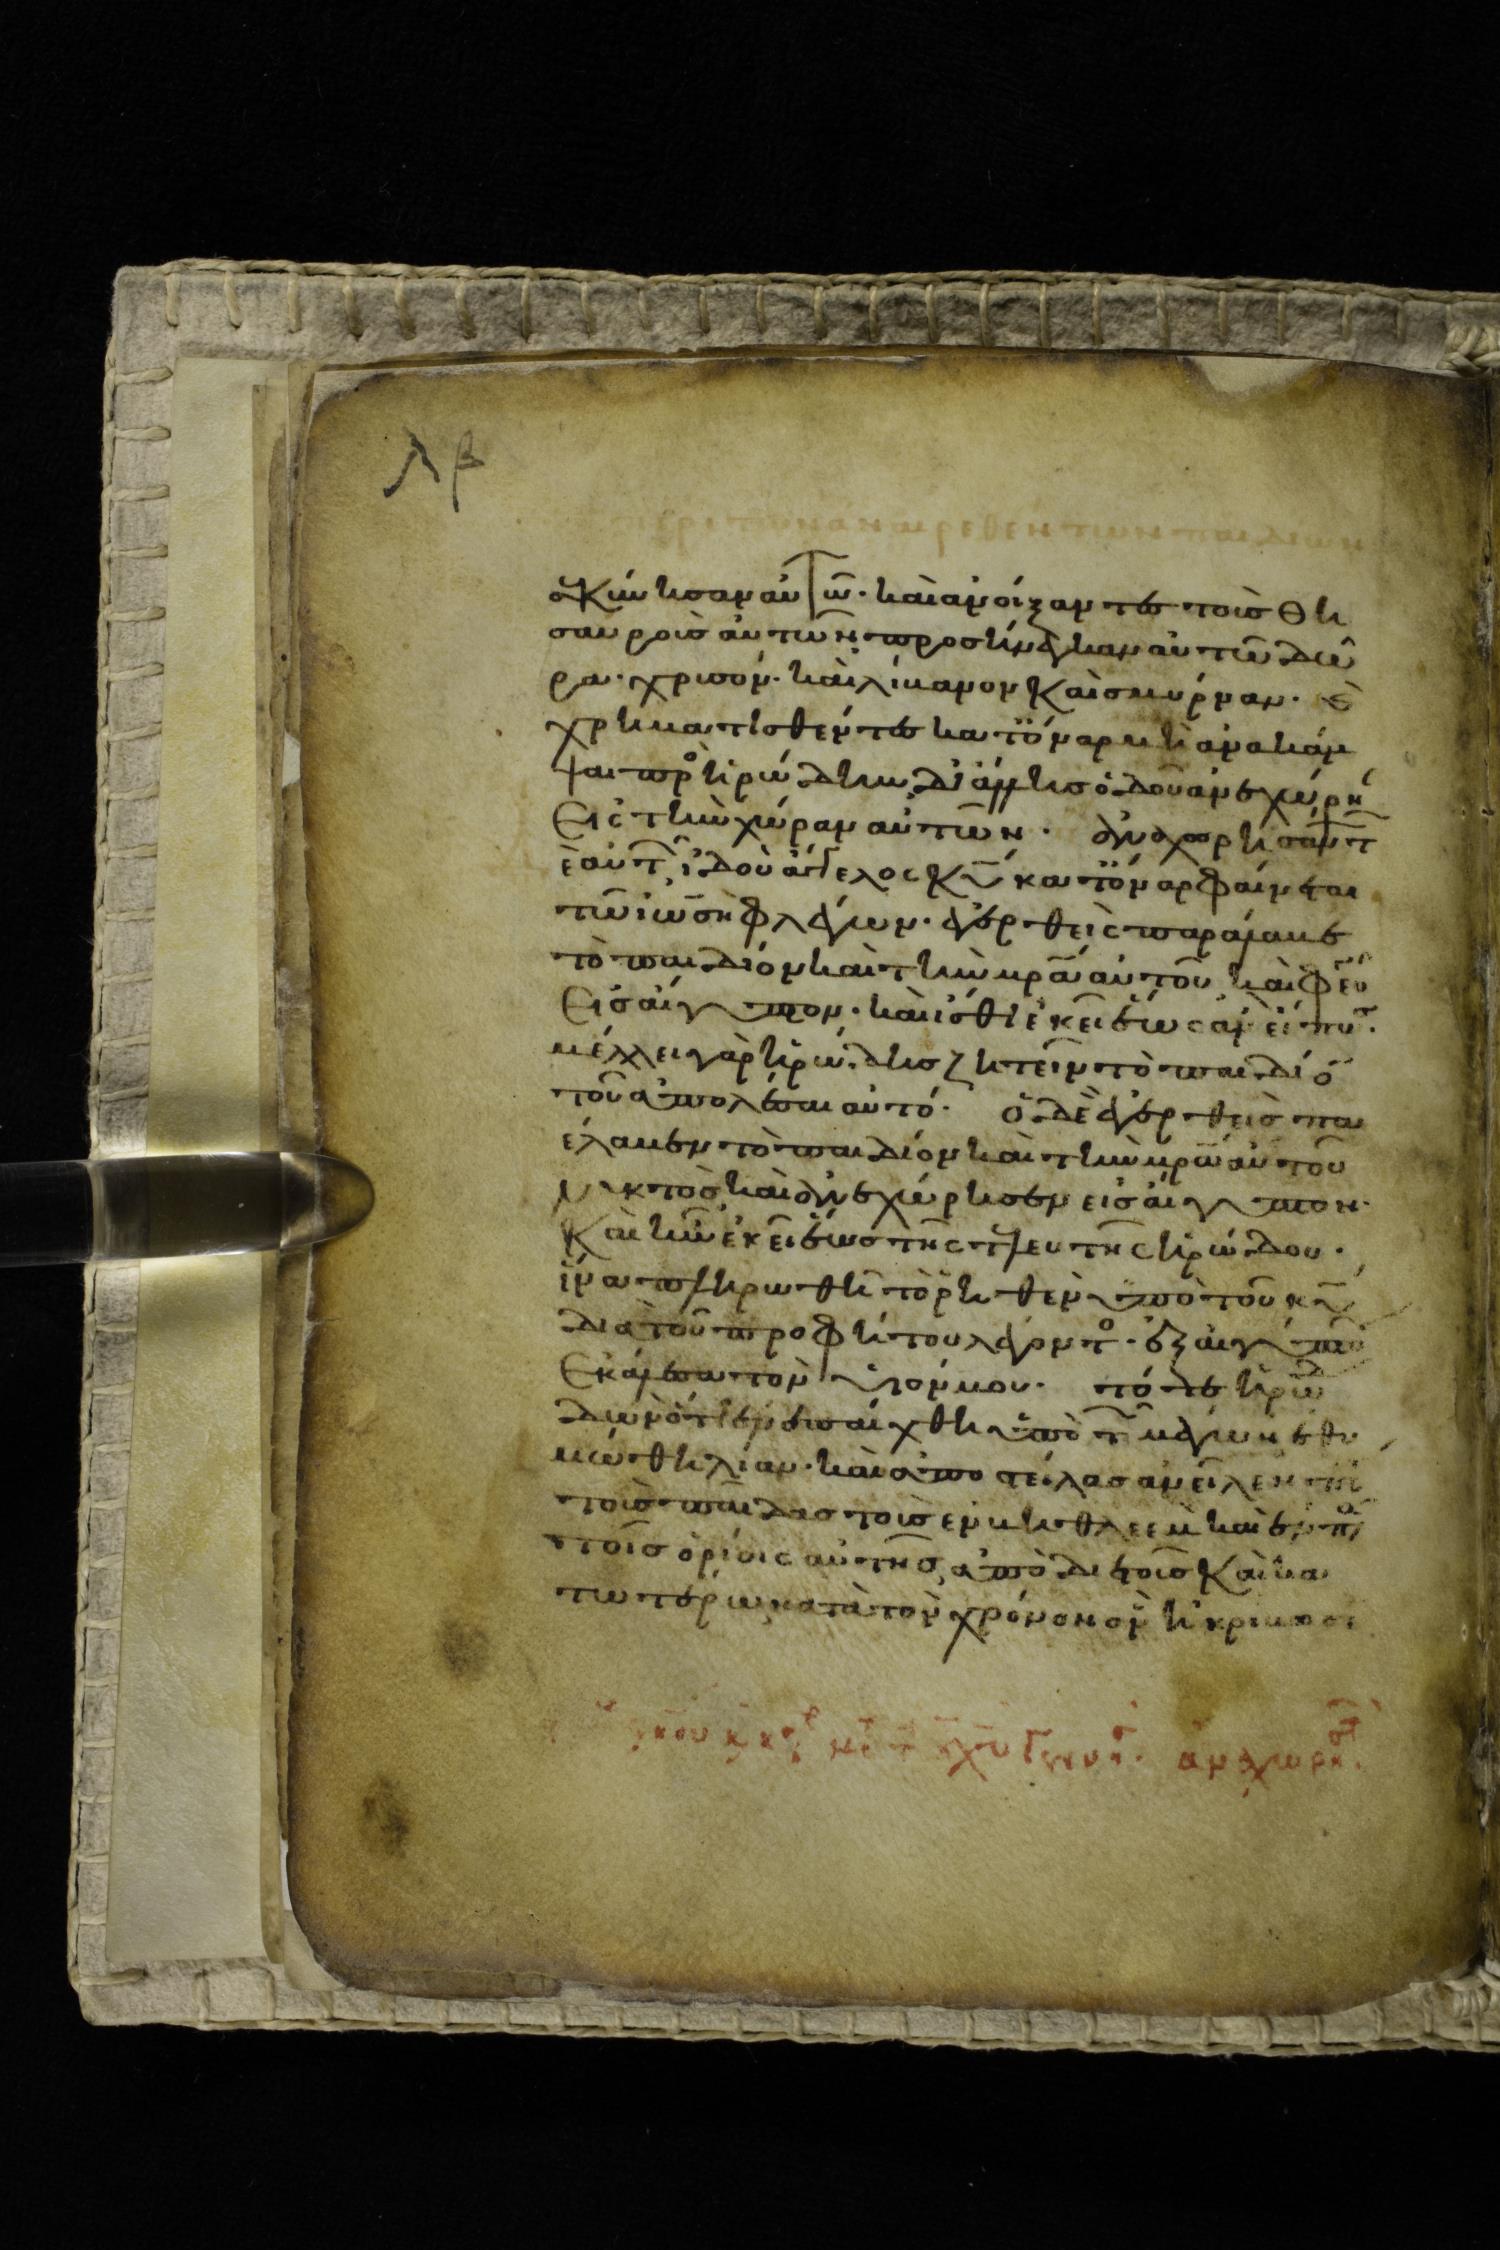 λβ
περι των αναιρεθεντων παιδιων
κύνησαν αυτῶ. καὶ ἀνοίξαντες τοὺς θη
σαυροὺς αὐτῶν προσήνεγκαν αὐτῶ δῶ
ρα. χρυσόν. καὶ λίβανον καὶ σμύρναν.
χρηματισθέντες κατ ὄναρ μὴ ἀνακάμ
ψαι πρὸ ἡρώδην δι ἄλλης ὁδοῦ ἀνεχώρη
εἰς τὴν χώραν αὐτῶν. ἀναχωρησάντ
δὲ αὐτ ἰδοὺ ἄγγελος κυ κατ ὄναρ φαίνεται
τῶ ἰωσὴφ λέγων. ἐγερθεὶς παράλαβε
τὸ παιδίον καὶ τὴν μρα αὐτοῦ καὶ φεῦ
εἰς αἴγυπτον. καὶ ἴσθι ἐκεῖ ἕως ἂν εἴπω
μέλλει γὰρ ἡρώδης ζητεῖν τὸ παιδίο
τοῦ ἀπολέσαι αὐτό. ὁ δὲ ἐγερθεὶς πα
έλαβεν τὸ παιδίον καὶ τὴν μρα αὐτοῦ
νυκτὸς καὶ ἀνεχώρησεν εἰς αἴγυπτον.
καὶ ἦν ἐκεῖ ἕως τῆς τελευτῆς ἡρώδου.
ἵνα πληρωθῆ τὸ ῥηθὲν ὑπὸ τοῦ κυ
διὰ τοῦ προφήτου λέγοντο. ἐξ αἰγύπτου
ἐκάλεσα τὸν υἱόν μου. τότε ἡρώδ
ἰδὼν ὅτι ἐνεπαίχθη ὑπὸ τ μάγων ἐθυ
μώθη λίαν. καὶ ἀποστείλας ἀνεῖλεν
τοὺς παῖδας τοὺς ἐν βηθλεεμ καὶ ἐν πα
τοῖς ὁρίοις αὐτῆς ἀπὸ διετοῦς καὶ κα
τωτέρω κατὰ τὸν χρόνον ὃν ἠκρίβωσε